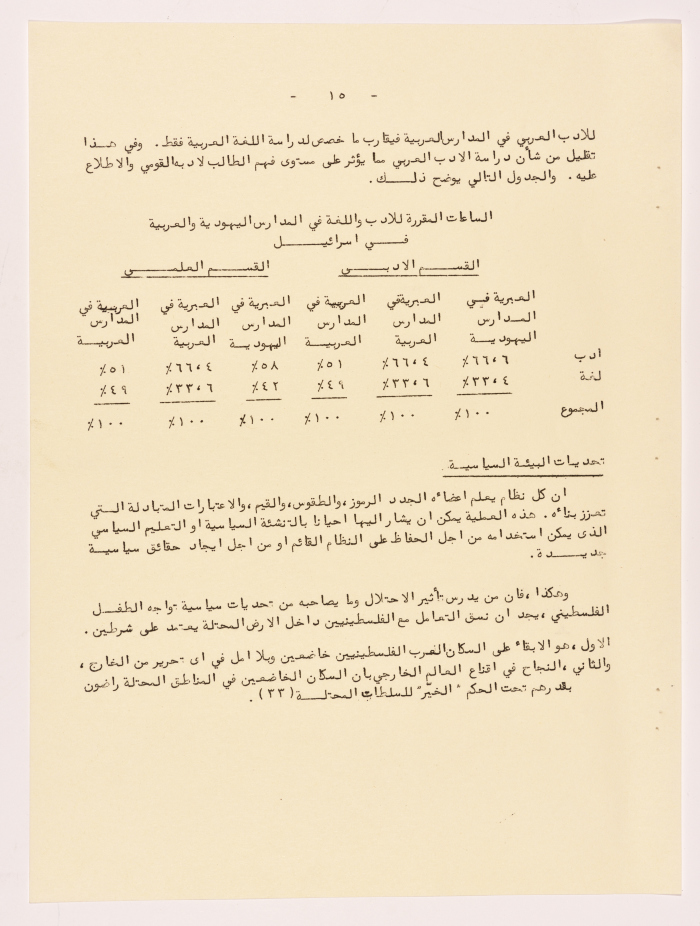 - ١٥ -
للادب العربي في المدارس العربية فيقارب ما خصص لدراسة اللغة العربية فقط. وفي هـــذا
تقليل من شأن دراسة الادب العربي مما يؤثر على مستوى فهم الطالب لادبه القومي والاطلاع
عليه. والجدول التالي يوضح ذلـــك.
الساعات المقررة للادب واللغة في المدارس اليهودية والعربية
فـــي اسرائيـــل
القســم الادبـــي القســم العلمـــي
العبرية فــي العبرية في العربية في العبرية في العبرية في العربية في
المــدارس المدارس المدارس المدارس المدارس المدارس
اليهوديــة العربية العربيــة اليهودية العربية العربيــة
أدب ٦٦،٦٪ ٦٦،٤٪ ٥١٪ ٥٨٪ ٦٦،٤٪ ٥١٪
لغة ٣٣،٤٪ ٣٣،٦٪ ٤٩٪ ٤٢٪ ٣٣،٦٪ ٤٩٪
المجموع ١٠٠٪ ١٠٠٪ ١٠٠٪ ١٠٠٪ ١٠٠٪ ١٠٠٪
تحديات البيئة السياسيــة
ان كل نظام يعلم اعضاءه الجدد الرموز، والطقوس، والقيم، والاعتبارات المتبادلة التــي
تعزز بناءه. هذه العملية يمكن ان يشار اليها احيانا بالتنشئة السياسية او التعليم السياسي
الذى يمكن استخدامه من اجل الحفاظ على النظام القائم او من اجل ايجاد حقائق سياسيــة
جديــــدة.
وهكذا، فان من يدرس تأثير الاحتلال وما يصاحبه من تحديات سياسية تواجه الطفــل
الفلسطيني، يجد ان نسق التعامل مع الفلسطينيين داخل الارض المحتلة يعتمد على شرطين.
الاول، هو الابقاء على السكان العرب الفلسطينيين خاضعين وبلا امل في اى تحرير من الخارج،
والثاني، النجاح في اقناع العالم الخارجي بان السكان الخاضعين في المناطق المحتلة راضون
بقدرهم تحت الحكم "الخيّر" للسلطات المحتلـــة (٣٣).